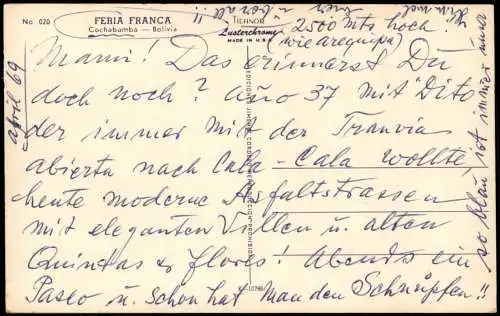 No. 020
FERIA FRANCA
Cochabamba — Bolivia
TICHNOR
Lusterchrome
MADE IN U.S.A.
2500 mts hoch!
(wie arequipa)
April 69
Mami! Das erinnerst Du
doch noch? Año 37 mit "Dito
der immer mit der Tranvia
abierta nach Cala-Cala wollte
heute moderne Asfaltstrassen
mit eleganten Villen u. alten
Quintas & flores! Abends ein
Paseo u. schon hat man den Schnüpfen!!
so blau ist immer
K-10788